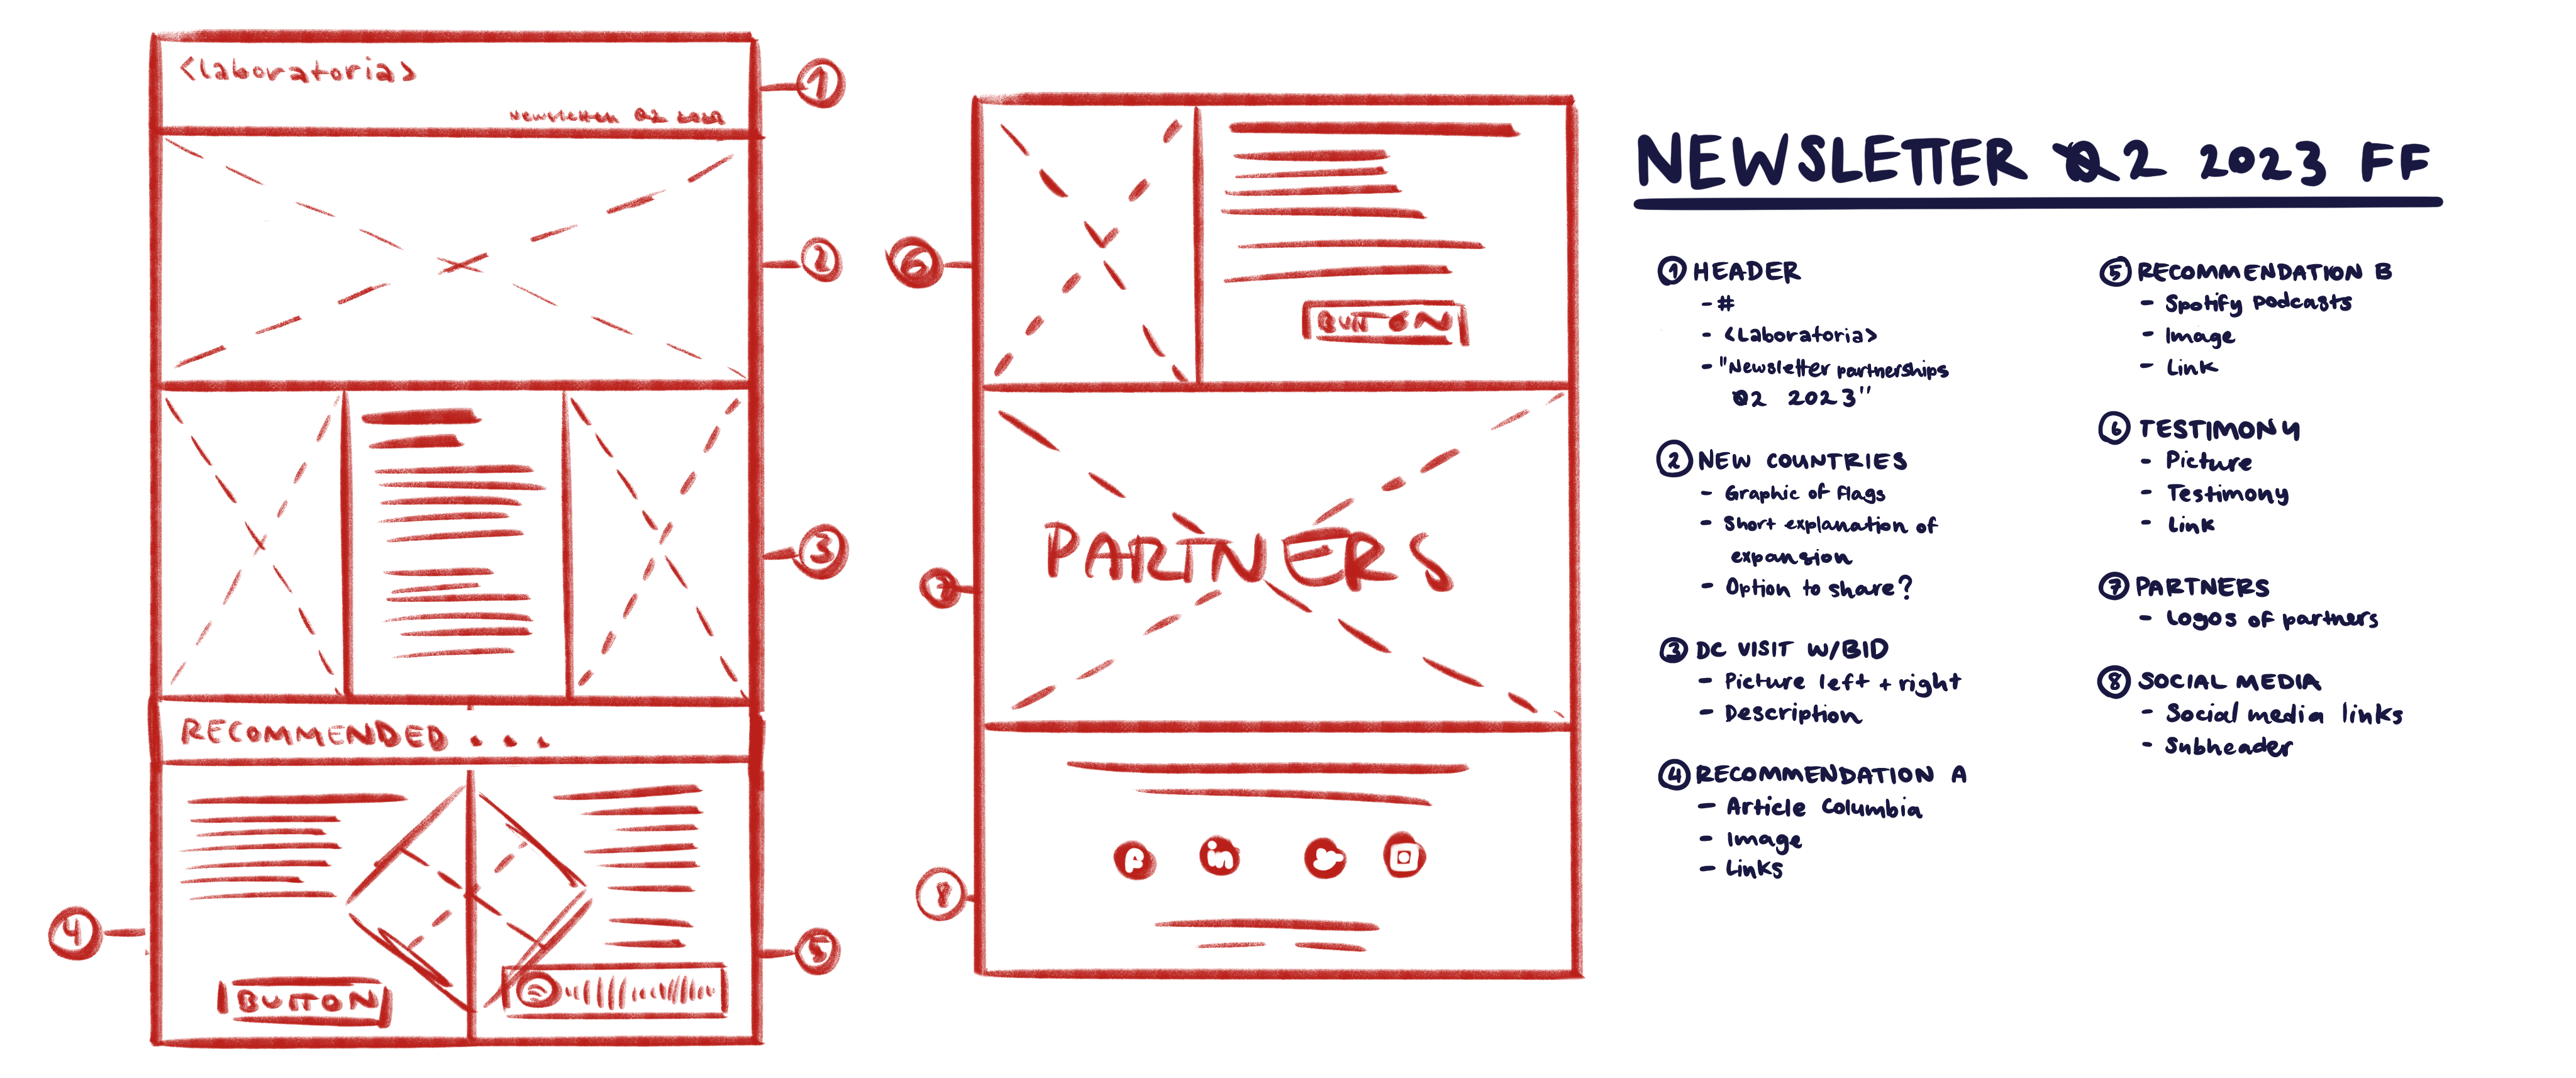 <laboratoria>
Newsletter Q2 2023
1
2
3
RECOMMENDED . . .
BUTTON
4
5
6
BUTTON
PARTNERS
7
in
8
NEWSLETTER Q2 2023 FF
1 HEADER
- #
- <Laboratoria>
- "Newsletter partnerships
Q2 2023"
2 NEW COUNTRIES
- Graphic of flags
- Short explanation of
expansion
- Option to share?
3 DC VISIT W/BID
- Picture left + right
- Description
4 RECOMMENDATION A
- Article Columbia
- Image
- Links
5 RECOMMENDATION B
- Spotify podcasts
- Image
- Link
6 TESTIMONY
- Picture
- Testimony
- Link
7 PARTNERS
- Logos of partners
8 SOCIAL MEDIA
- Social media links
- Subheader